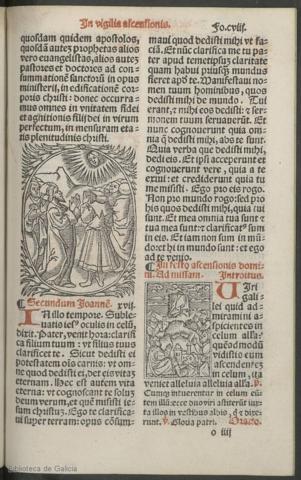 In vigilia ascensionis.
Fo.cviij.
quosdam quidem apostolos,
quosdā autez prophetas alios
vero euangelistas, alios autez
pastores et doctores ad con-
summationē sanctorū in opus
ministerij, in edificationē cor
poris christi: donec occurra-
mus omnes in vnitatem fidei
et agnitionis filij dei in virum
perfectum, in mensuram eta-
tis plenitudinis christi.
Secundum Joannē. xvij.
IN illo tempore. Suble-
uatis iesus oculis in celū,
dixit. Pater, venit hora: clarifi
ca filium tuum: vt filius tuus
clarificet te. Sicut dedisti ei
potestatem oīs carnis: vt om-
ne quod dedisti ei, det eis vitaz
eternam. Hec est autem vita
eterna: vt cognoscant te solum
deum verum, et quē misisti ie-
sum christuz. Ego te clarifica-
ui super terram: opus cōsum-
maui quod dedisti mihi vt fa-
ciā. Et nūc clarifica me tu pa-
ter apud temetipsuz claritate
quam habui priusquam mundus
fieret apd te. Manifestaui no-
men tuum hominibus, quos
dedisti mihi de mundo. Tui
erant, et mihi eos dedisti: et ser-
monem tuum seruauerūt. Et
nunc cognouerunt quia om-
nia que dedisti mihi, abs te sunt.
Quia verba que dedisti mihi,
dedi eis. Et ipsi acceperunt et
cognouerunt vere, quia a te
exiui: et crediderunt quia tu
me misisti. Ego pro eis rogo.
Non pro mundo rogo: sed pro
his quos dedisti mihi, quia tui
sunt. Et mea omnia tua sunt et
tua mea sunt: et clarificatus sum
in eis. Et iam non sum in mū-
do: et hi in mundo sunt: et ego
ad te venio.
In festo ascensionis domi-
ni. Ad missam. Introitus.
VIri
gali-
lei quid ad-
miramini a-
spicientes in
celum alla?
quēadmodū
vidistis eum
ascendentez
in celum, ita
veniet alleluia alleluia alla. ps.
Cumque intuerentur in celum eun
tem illū: ecce duo viri astiterūt iux-
ta illos in vestibus albis, qui et dixe-
runt. v. Gloria patri. Oratio.
o iiij
Biblioteca de Galicia